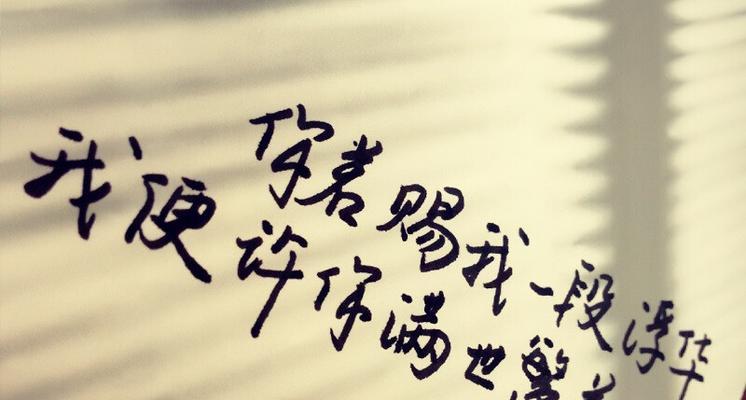 你若赐我一段浮华
我便许你满世繁